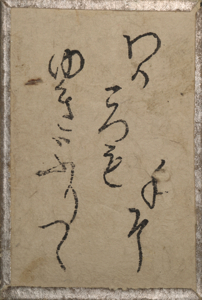 わか
ころも
手に
ゆきはふりつゝ